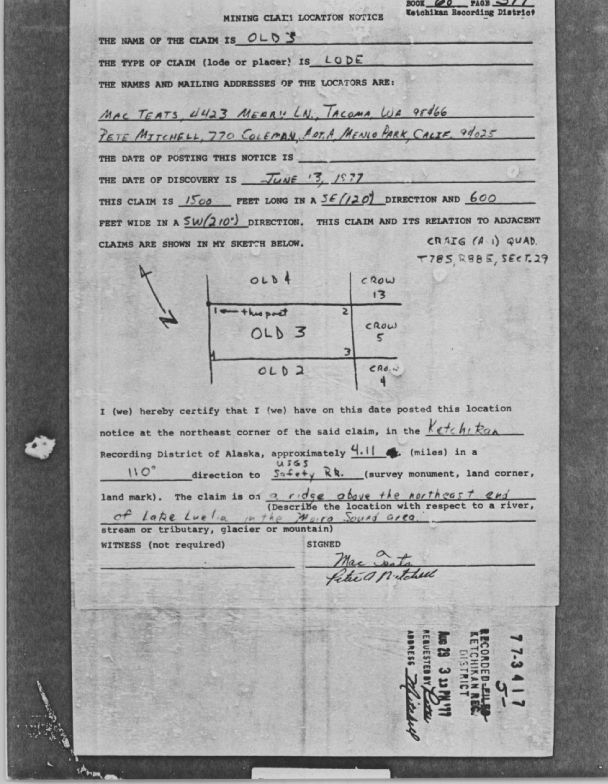 BOOK 60 PAGE
Ketchikan Recording District
MINING CLAIM LOCATION NOTICE
THE NAME OF THE CLAIM IS OLD 3
THE TYPE OF CLAIM (lode or placer) IS LODE
THE NAMES AND MAILING ADDRESSES OF THE LOCATORS ARE:
MAC TEATS, 4423 MERRY LN., TACOMA, WA 98466
PETE MITCHELL, 770 COLEMAN, APT.A, MENLO PARK, CALIF. 94025
THE DATE OF POSTING THIS NOTICE IS
THE DATE OF DISCOVERY IS JUNE 13, 1977
THIS CLAIM IS 1500 FEET LONG IN A SE(120°) DIRECTION AND 600
FEET WIDE IN A SW(210°) DIRECTION. THIS CLAIM AND ITS RELATION TO ADJACENT
CLAIMS ARE SHOWN IN MY SKETCH BELOW.
CRAIG (A 1) QUAD.
T78S, R88E, SECT. 29
OLD 4
CROW
13
1 ← this post
2
N
OLD 3
CROW
5
4
3
OLD 2
CROW
4
I (we) hereby certify that I (we) have on this date posted this location
notice at the northeast corner of the said claim, in the Ketchikan
Recording District of Alaska, approximately 4.11 (miles) in a
110° direction to USGS Safety Rk. (survey monument, land corner,
land mark). The claim is on a ridge above the northeast end
(Describe the location with respect to a river,
of Lake Luelia in the Moira Sound area.
stream or tributary, glacier or mountain)
WITNESS (not required)
SIGNED
Mac Teats
Peter A Mitchell
77-3417
5-
RECORDED-FILED
KETCHIKAN REC.
DISTRICT
AUG 29 3 33 PM '77
REQUESTED BY Pete
ADDRESS Mitchell